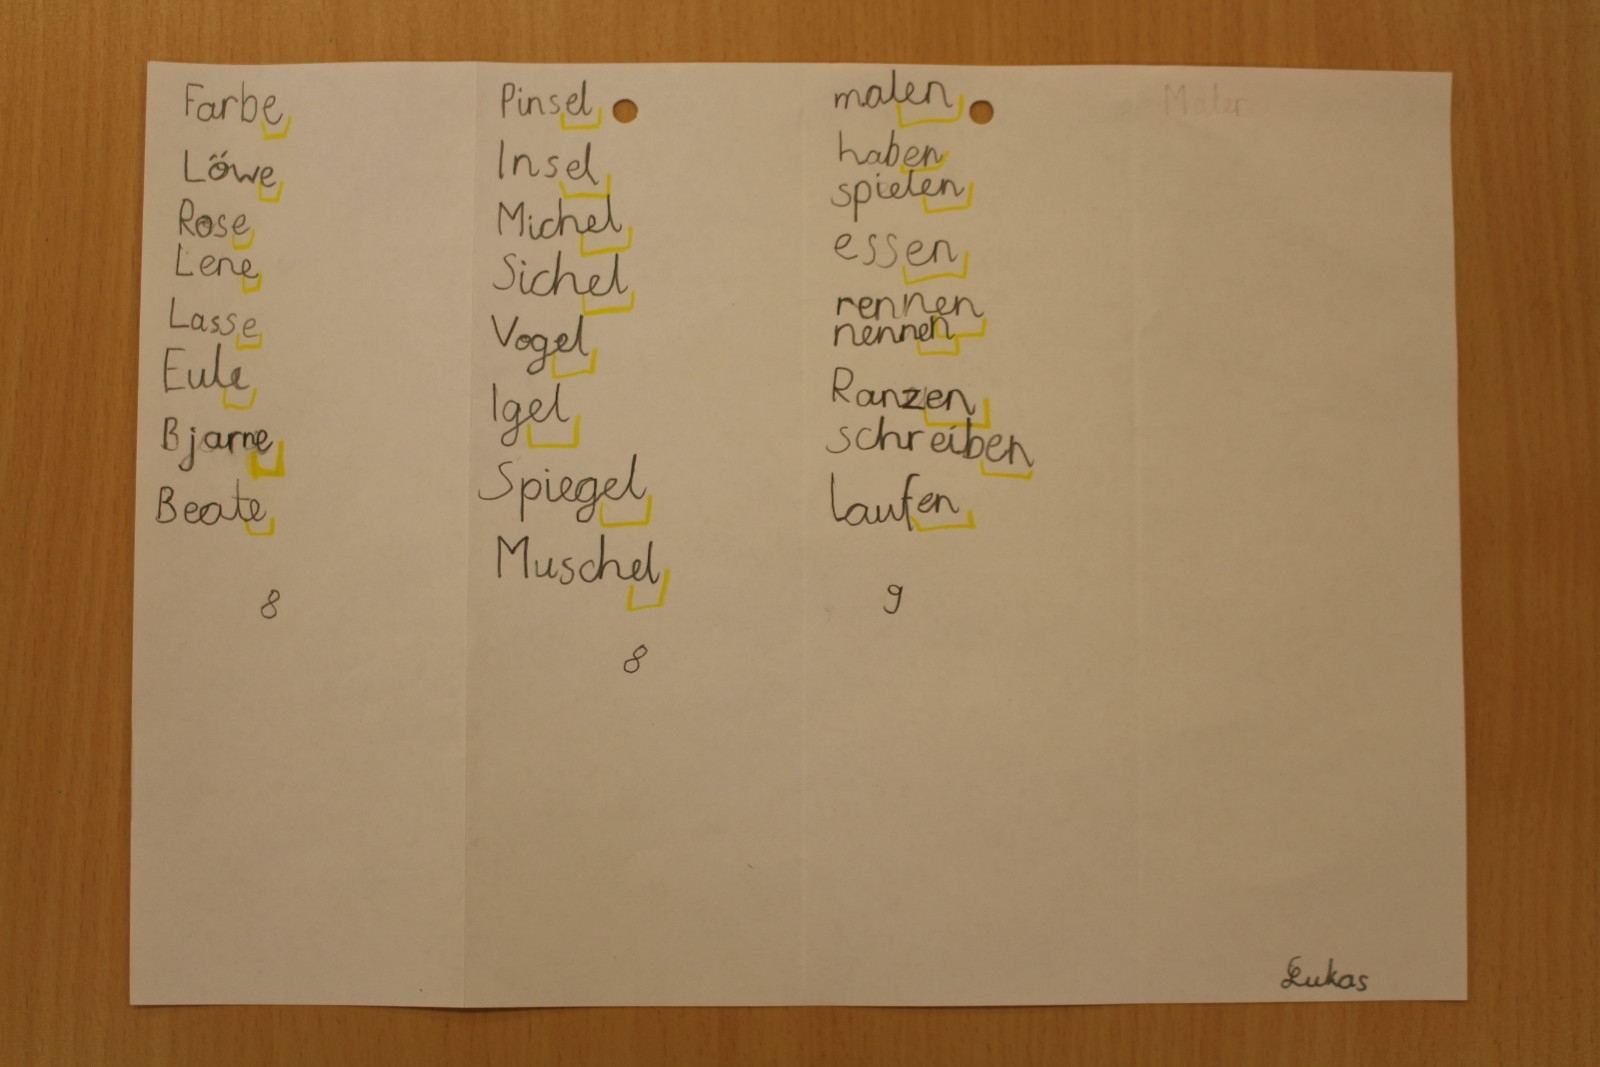 Farbe
Löwe
Rose
Lene
Lasse
Eule
Bjarne
Beate
8
Pinsel
Insel
Michel
Sichel
Vogel
Igel
Spiegel
Muschel
8
malen
haben
spielen
essen
rennen
nennen
Ranzen
schreiben
laufen
9
Maler
Lukas